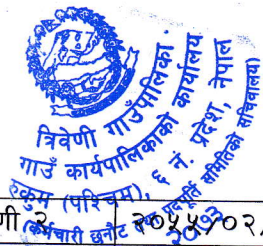 त्रिवेणी गाउँपालिका
गाउँ कार्यपालिकाको कार्यालय
रुकुम (पश्चिम), ६ नं. प्रदेश, नेपाल
(कर्मचारी छनौट पदपूर्ति समितिको सचिवालय)
२०७३
णी २
२०५५/०२/